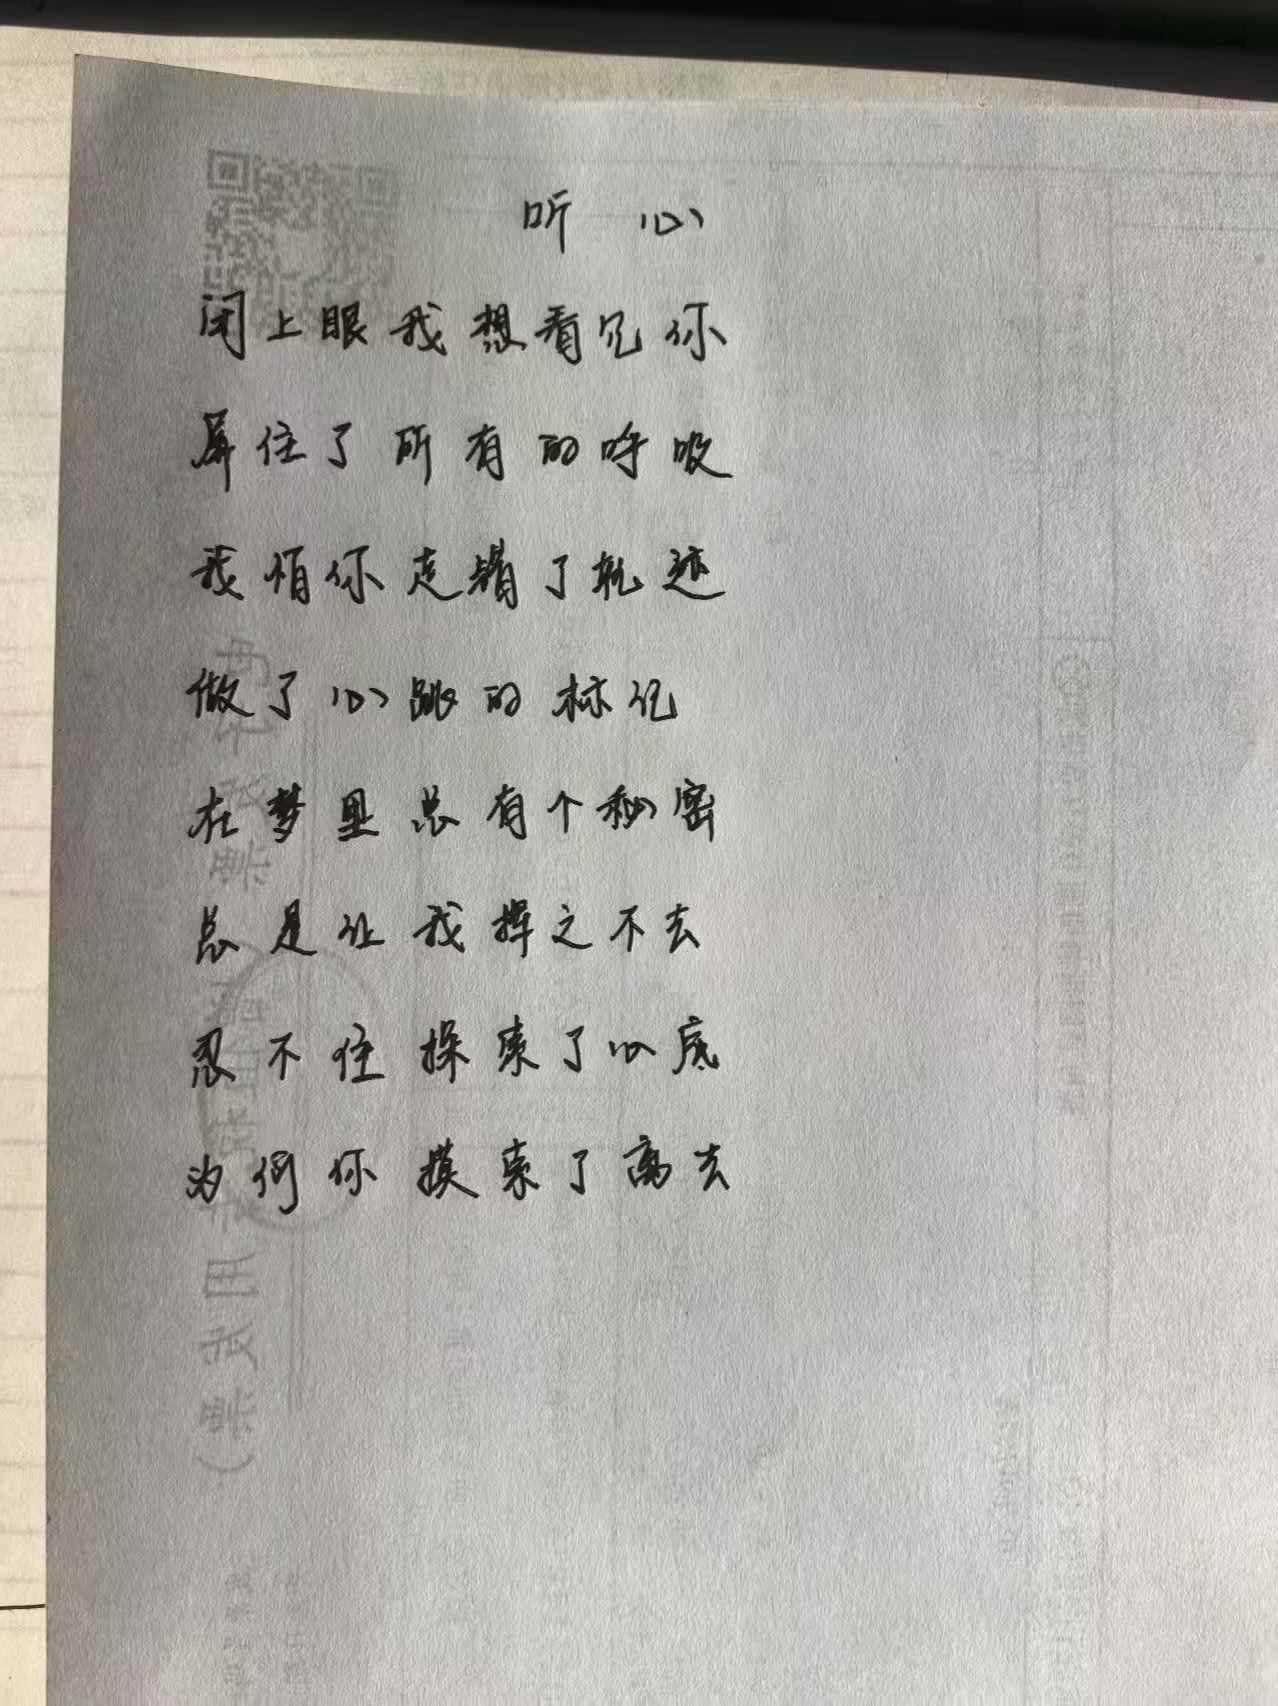 听心
闭上眼我想看见你
屏住了所有的呼吸
我怕你走错了轨迹
做了心跳的标记
在梦里总有个秘密
总是让我挥之不去
忍不住探索了心底
为何你摸索了离去